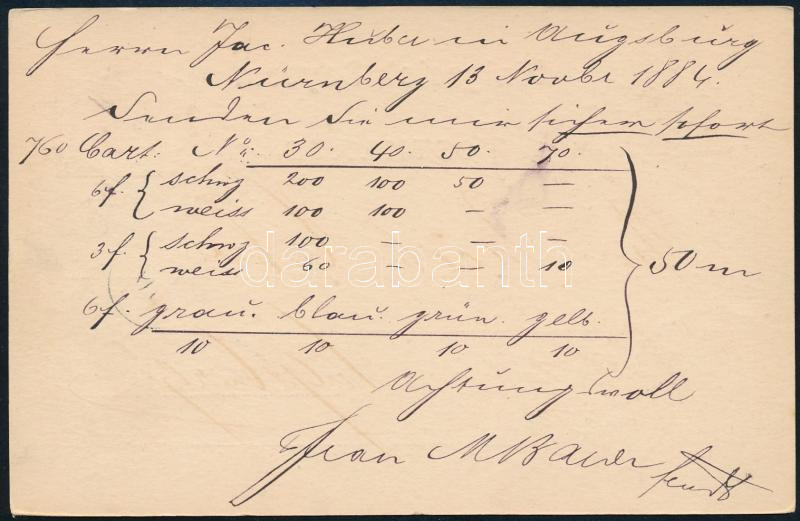 Herrn Jac. Huber in Augsburg
Nürnberg 13 Novbr 1884.
Senden Sie mir sicher sofort
760 Cart: No. 30. 40. 50. 70.
6f. { schwz 200 100 50 —
weiss 100 100 — —
3f. { schwz 100 — — —
weiss 60 — — 10
} 50 m
6f. grau. blau. grün. gelb.
10 10 10 10
Achtungsvoll
Jean
darabanth